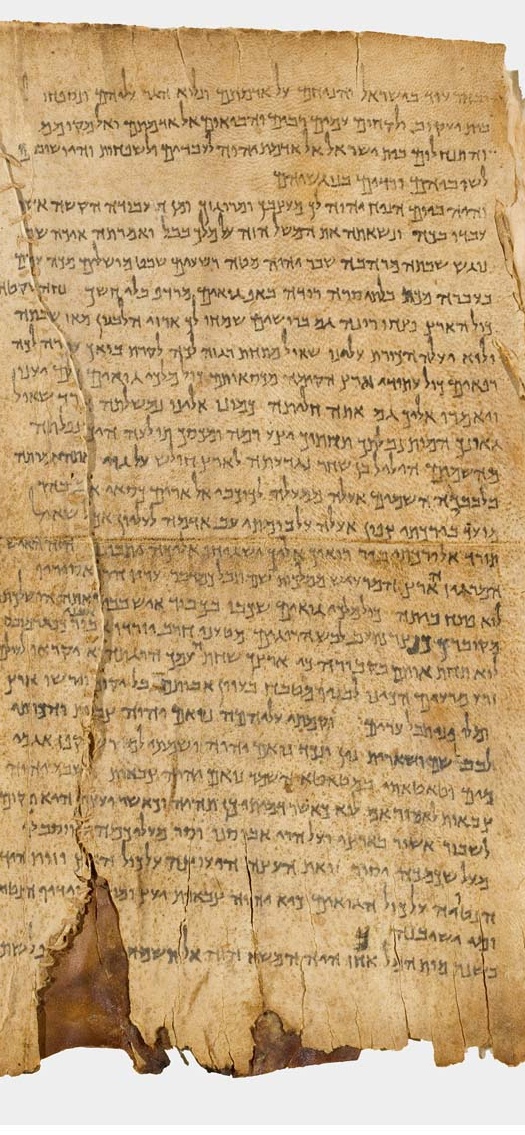 ובחר עוד בישראל והניחם על אדמתם ונלוא הגר עליהם ונספחו
בית יעקוב ולקחום עמים רבים והביאום אל אדמתם ואל מקומם
והתנחלום בית ישראל אל אדמת יהוה לעבדים ולשפחות והיו שובים
לשוביהם ורדים בנוגשיהם
והיה ביום הניח יהוה לך מעצבך ומרוגזך ומן העבודה הקשה
עבדו בכה ונשאתה את המשל הזה על מלך בבל ואמרתה איכה
נוגש שבתה מרהבה שבר יהוה מטה רשעים שבט מושלים מכה עמים
בעברה מכת בלתי סרה רודה באף גואים מרדף בלי חשך
כול הארץ פצחו רינה גם ברושים שמחו לך ארזי הלבנון מאז שכבתה
ולוא יעלה הכורת עלינו שאול מתחת רגזה לכה לקרת בואך לכה
רפאים כול עתודי ארץ הקימה מכסאותם כול מלכי גואים יענו
ויאמרו אליך גם אתה חליתה כמונו אלינו נמשלתה הורד שאול
גאונך המית נבלך תחתיך יצע רמה ומכסך תולעה היך נפלתה
מהשמים הילל בן שחר נגדעתה לארץ חולש על גוי
בלבבך השמים אעלה ממעלה לכוכבי אל ארים כסאי
מועד בירכתי צפון אעלה על במתי עב אדמה לעליון אך שאול
תורד אל ירכתי בור רואיך אליך ישגיחו הזה האיש
המרגיז הארץ המרעיש ממלכות שם תבל כמדבר עריו הרס אסיריו
לוא פתח ביתה כול מלכי גואים שכבו בכבוד איש
מקוברך נתעב לבוש הרוגים מטעני חרב יורדי בור
לוא תחת אותם בקבורה כי ארצך שחת עמך הרגתה לוא יקראו
זרע מרעים הכינו לבניו מטבח בעוון אבותם בל יקומו וירשו ארץ
פני תבל ערים וקמתי עליהם נואם יהוה והכרתי
לבבל שם ושארית נין ונכד נואם יהוה ושמתי קפז אגמי
מים וטאטאתי במטאטא השמד נואם יהוה צבאות יהוה
צבאות לאמור אם לוא כאשר דמיתי כן תהיה וכאשר יעצתי היא
לשבור אשור בארצי ועל הרי אבוסנו וסר מעליכמה
מעל שכמכה יסור זואת העצה היעוצה על כול הארץ וזות היד
הנטויה על כול הגואים כיא יהוה צבאות יעץ ומי
ומי ישיבנה
בשנת מות המלך אחז היה המשא הזה אל תשמחי